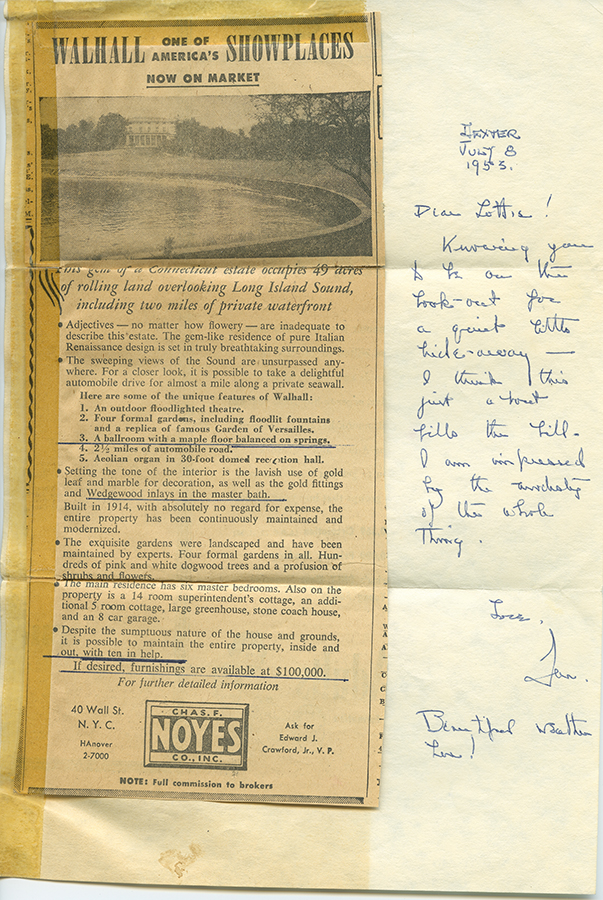 WALHALL ONE OF AMERICA'S SHOWPLACES
NOW ON MARKET
This gem of a Connecticut estate occupies 49 acres
of rolling land overlooking Long Island Sound,
including two miles of private waterfront
• Adjectives — no matter how flowery — are inadequate to
describe this estate. The gem-like residence of pure Italian
Renaissance design is set in truly breathtaking surroundings.
• The sweeping views of the Sound are unsurpassed any-
where. For a closer look, it is possible to take a delightful
automobile drive for almost a mile along a private seawall.
Here are some of the unique features of Walhall:
1. An outdoor floodlighted theatre.
2. Four formal gardens, including floodlit fountains
and a replica of famous Garden of Versailles.
3. A ballroom with a maple floor balanced on springs.
4. 2½ miles of automobile road.
5. Aeolian organ in 30-foot domed reception hall.
• Setting the tone of the interior is the lavish use of gold
leaf and marble for decoration, as well as the gold fittings
and Wedgewood inlays in the master bath.
Built in 1914, with absolutely no regard for expense, the
entire property has been continuously maintained and
modernized.
• The exquisite gardens were landscaped and have been
maintained by experts. Four formal gardens in all. Hun-
dreds of pink and white dogwood trees and a profusion of
shrubs and flowers.
• The main residence has six master bedrooms. Also on the
property is a 14 room superintendent's cottage, an addi-
tional 5 room cottage, large greenhouse, stone coach house,
and an 8 car garage.
• Despite the sumptuous nature of the house and grounds,
it is possible to maintain the entire property, inside and
out, with ten in help.
If desired, furnishings are available at $100,000.
For further detailed information
40 Wall St.
N. Y. C.
HAnover
2-7000
CHAS. F.
NOYES
CO., INC.
Ask for
Edward J.
Crawford, Jr., V. P.
NOTE: Full commission to brokers
Dexter
July 8
1953.
Dear Lottie!
Knowing you
to be on the
look-out for
a quiet little
hide-away —
I think this
just about
fills the bill.
I am impressed
by the
of the whole
thing.
Love,
Beautiful weather
here!